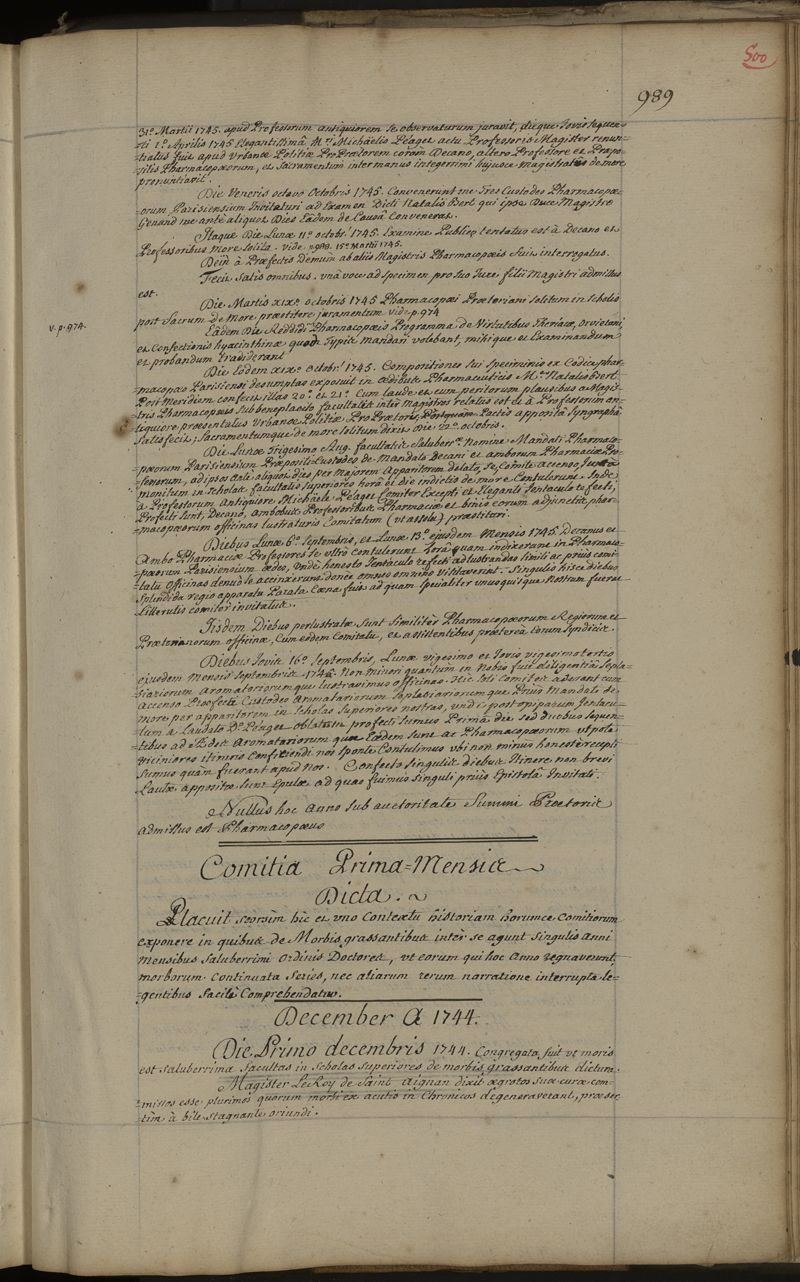 500
989
31.º Martii 1745. apud Professorum antiquiorem se observaturum juravit, dieque Jovis sequen=
=ti 1.º Aprilis 1745 elegantissimâ M.ri Michaelis Peaget actu Professoris Magister renun=
=tiatus fuit apud Urbanæ Politiæ ProPrætorem coram Decano, altero Professore et Præpo=
=sitis Pharmacopæorum, et Sacramentum inter manus integerrimi hujusce Magistratus de more
pronuntiavit.
Die Veneris octavo Octobris 1745. Convenerunt me Tres Custodes Pharmacopæ=
=orum Parisiensium Invitaturi ad Examen Dicti Natalis Bert qui ipse Duce Magistro
Genand me antè aliquot Dies Eâdem de Causâ Convenerat.
Itaque Die Lunæ 11.º octobr. 1745. Examine Publico tentatus est à Decano et
Professoribus more solito. Vide p. 988. 15.º Martii 1745.
Dein à Præfectis Demùm ab aliis Magistris Pharmacopæis Fuit interrogatus.
Fecit Satis omnibus. unâ voce ad specimen pro suo Jure filii Magistri admissus
est.
Die Martis XIX.º octobris 1745 Pharmacopæi Prætoriani solitum in Scholis
v. p. 974.
post Sacrum de more præstitere juramentum vide p. 974
Eâdem Die Reddidi Pharmacopæis Programma de Virtutibus Theriacæ, Orvietani,
et Confectionis hyacinthinæ quod Typis mandari volebant, mihique et Examinandum
et probandum tradiderant
Die Eodem XIX.º octobr. 1745. Compositiones sui Speciminis ex Codice phar=
=macopæo Parisiensi desumptas exposuit in ædibus Pharmaceuticis M.r Natalis Bert.
Post Meridiem confecit illas 20.º et 21.º Cum laude et cum peritorum plausibus a Magis=
=tris Pharmacopæis sub beneplacito facultatis inter Magistros relatus est et à Professorum an=
=tiquiore præsentatus Urbanæ Politiæ ProPrætori, Lectio apposita Syngrapha
Satisfecit, Sacramentumque de more solitum dixit Die 22.º octobris.
Die Lunæ Trigesimo Aug. facultatis Saluberr.æ Nomine Mandati Pharmaco=
=pæorum Parisiensium Præpositi Custodes de Mandato Decani et amborum Pharmaciæ Pro=
=fessorum, ad ipsos ante aliquot dies per Majorem Apparitorem delato, se, Comite accenso Juxta
monitum in Scholas facultatis superiores horâ et die indictis de more Contulerunt. Inde
à Professorum Antiquiore Michaële Peaget Comiter Excepti et Eleganti Jentaculo refecti,
Profecti sunt, Decano, ambobus Professoribus Pharmaciæ et binis eorum adjunctis, phar=
=macopæorum officinas lustraturis Comitatum (ut assolet) præstituri.
Diebus Lunæ 6.º Septembris, et Lunæ 13.º ejusdem Mensis 1745. Decanus et
Ambo Pharmaciæ Professores se ultro contulerunt horâ quam indixerant in Pharmaco=
=pæorum Parisiensium ædes, unde honesto Jentaculo refecti ad lustrandas simili ac prius comi=
=tatu officinas denuo se accinxerunt donec omnes omnino visitaverint. Singulis hisce diebus
Splendida regio apparatu Parata Cæna fuit ad quam specialiter unusquisque nostrum fuerat
Litterulis comiter invitatus.
Iisdem Diebus perlustratæ Sunt similiter Pharmacopæorum Regiorum et
Prætorianorum officinæ, Cum eodem Comitatu, et assistentibus præterea eorum Syndicis.
Diebus Jovis 16.º Septembris, Lunæ vigesimo et Jovis vigesimo tertio
ejusdem Mensis Septembris 1745. Non minori quantum in Nobis fuit diligentiâ Sepla=
=siariorum Aromatariorumque lustravimus officinas. Hic soli Comites aderant cum
Accenso Præfecti Custodes Aromatariorum Seplasiariorumque Prius Mandato de
more per apparitorem in Scholas superiores nostras, unde post opiparum jentacu=
=lum à Laudato D.º Peaget oblatum profecti sumus Primâ die sed duobus sequen=
=tibus ad Ædes Aromatariorum quæ Eædem sunt ac Pharmacopæorum utpote
viciniores itineris Conficiendi nos sponte Contulimus ubi non minus honestè recepti
Sumus quàm fuerant apud nos. Confecto singulis diebus Itinere non brevi
Lautæ appositæ sunt Epulæ ad quas fuimus singuli priùs Epistolâ Invitati.
Nullus hoc Anno sub auctoritate Summi Prætoris
admissus est Pharmacopæus
Comitia Prima=Mensis
Dicta.
Placuit seorsim hic et uno Contextu historiam horumce Comitiorum
exponere in quibus de Morbis grassantibus inter se agunt Singulis Anni
Mensibus Saluberrimi Ordinis Doctores, ut eorum qui hoc Anno regnaverunt
morborum. Continuata Series, nec aliarum rerum narratione interrupta le=
=gentibus facilè Comprehendatur.
December A 1744.
Die Primo decembris 1744. Congregata fuit ut moris
est saluberrima facultas in Scholas Superiores de morbis grassantibus dictum.
Magister LeRoy de Saint Aignan dixit ægrotos suæ curæ com=
=missos esse plurimos quorum morbi ex acutis in Chronicos degeneraverant, præser=
=tìm à bile stagnante oriundi.